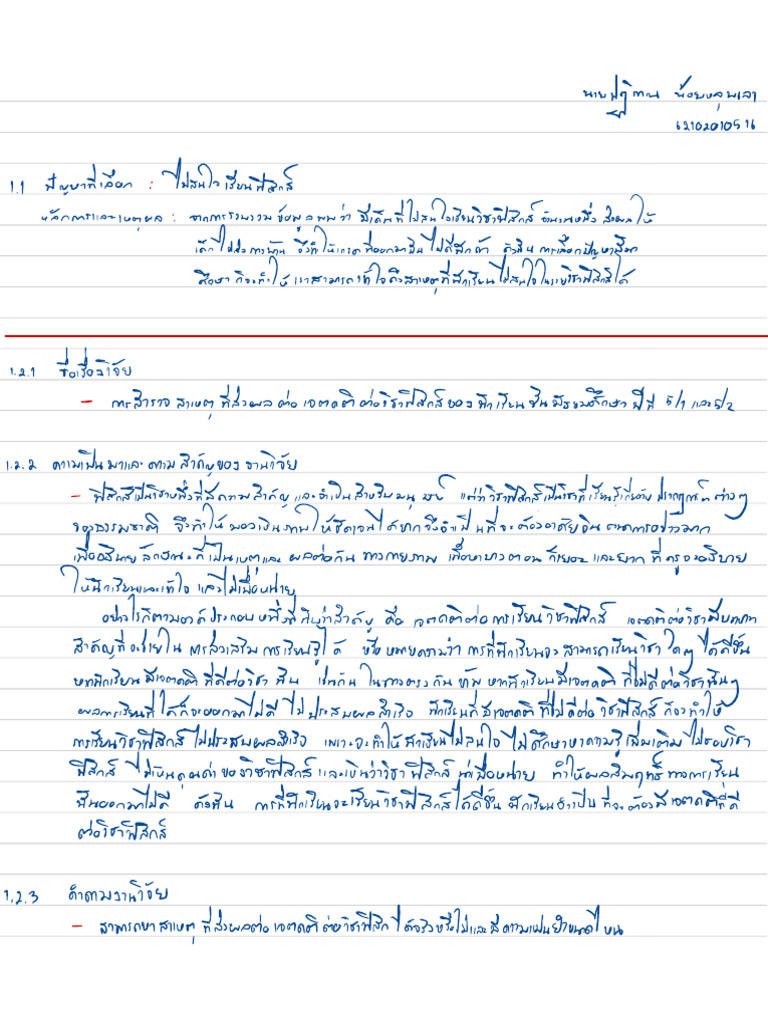 นายปฏิภาณ น้อยหลุบเลา
62102010516
1.1 ปัญหาที่เลือก : ไม่สนใจเรียนฟิสิกส์
หลักการและเหตุผล : จากการรวบรวมข้อมูลพบว่า มีเด็กที่ไม่สนใจเรียนวิชาฟิสิกส์ จำนวนหนึ่ง ส่งผลให้
เด็กไม่ส่งการบ้าน จึงทำให้เกรดที่ออกมานั้นไม่ดีสักเท่า ดังนั้นการเลือกปัญหานี้มา
ศึกษา ก็จะทำให้เราสามารถเข้าใจถึงสาเหตุที่นักเรียนไม่สนใจในรายวิชาฟิสิกส์ได้
1.2.1 ชื่อเรื่องวิจัย
- การสำรวจสาเหตุที่ส่งผลต่อเจตคติต่อวิชาฟิสิกส์ของนักเรียนชั้นมัธยมศึกษาปีที่ 5/1 และ 5/2
1.2.2 ความเป็นมาและความสำคัญของงานวิจัย
- ฟิสิกส์เป็นวิชาหนึ่งที่มีความสำคัญและจำเป็นสำหรับมนุษย์ แต่ว่าวิชาฟิสิกส์เป็นวิชาที่เรียนรู้เกี่ยวกับปรากฏการณ์ต่างๆ
ของธรรมชาติ จึงทำให้มองเห็นภาพให้ชัดเจนได้ยากจึงจำเป็นที่จะต้องอาศัยจินตนาการอย่างมาก
เพื่ออธิบายลักษณะที่เป็นเหตุและผลต่อกันทางกายภาพ เนื้อหาบางตอนก็เยอะและยากที่ครูจะอธิบาย
ให้นักเรียนและเข้าใจ และไม่เบื่อหน่าย
อย่างไรก็ตามองค์ประกอบหนึ่งที่นับว่าสำคัญ คือ เจตคติต่อการเรียนวิชาฟิสิกส์ เจตคติต่อวิชามีบทบาท
สำคัญที่จะช่วยในการส่งเสริมการเรียนรู้ได้ หรือหมายความว่า การที่นักเรียนจะสามารถเรียนวิชาใดๆ ได้ดีขึ้น
หากนักเรียนมีเจตคติที่ดีต่อวิชานั้น เช่นกันในทางตรงกันข้าม หากนักเรียนมีเจตคติที่ไม่ดีต่อวิชานั้นๆ
ผลการเรียนที่ได้ก็จะออกมาไม่ดี ไม่ประสบผลสำเร็จ นักเรียนที่มีเจตคติที่ไม่ดีต่อวิชาฟิสิกส์ ก็จะทำให้
การเรียนวิชาฟิสิกส์ไม่ประสบผลสำเร็จ เพราะจะทำให้นักเรียนไม่สนใจ ไม่ศึกษาหาความรู้เพิ่มเติม ไม่ชอบวิชา
ฟิสิกส์ ไม่เห็นคุณค่าของวิชาฟิสิกส์ และเห็นว่าวิชาฟิสิกส์น่าเบื่อหน่าย ทำให้ผลสัมฤทธิ์ทางการเรียน
นั้นออกมาไม่ดี ดังนั้น การที่นักเรียนจะเรียนวิชาฟิสิกส์ได้ดีขึ้น นักเรียนจำเป็นที่จะต้องมีเจตคติที่ดี
ต่อวิชาฟิสิกส์
1.2.3 คำถามงานวิจัย
- สามารถหาสาเหตุที่ส่งผลต่อเจตคติต่อวิชาฟิสิกส์ได้จริงหรือไม่และมีความแม่นยำขนาดไหน